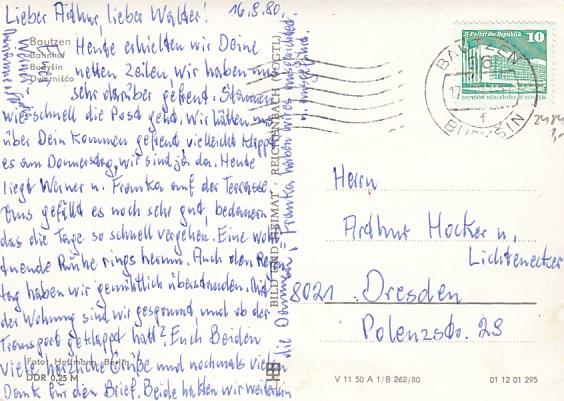 Lieber Arthur, lieber Walder!
16.8.80,
Heute erhielten wir Deine
netten Zeilen, wir haben uns
sehr darüber gefreut. Staunen
wie schnell die Post geht. Wir hätten uns
über Dein Kommen gefreut vielleicht klappt
es am Donnerstag, wir sind ja da. Heute
liegt Werner u. Franka auf der Terrasse.
Uns gefällt es noch sehr gut, bedauern
das die Tage so schnell vergehen. Eine woh
tuende Ruhe rings herum. Auch den Regen
tag haben wir gemütlich überstanden. Mit
der Wohnung sind wir gespannt und ob der
Transport geklappt hat? Euch Beiden
viele herzliche Grüße und nochmals vielen
Dank für den Brief. Beide halten wir weiterhin
die Daumen,
Franka, haben wir es ausgerichtet
Bautzen
Bahnhof
Budyšin
Dwórnišćo
Foto: Hoffmann, Berlin
DDR 0,25 M
BILD UND HEIMAT · REICHENBACH (VOGTL)
DEUTSCHE DEMOKRATISCHE REPUBLIK
10
BAUTZEN
17
f
BUDYŠIN
Herrn
Arthur Hocker u.
Lichtenecker
8021 Dresden
Polenzstr. 29
V 11 50 A 1/B 262/80
01 12 01 295